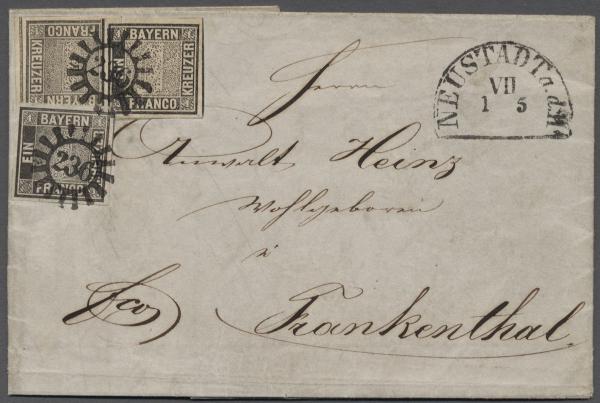 FRANCO
KREUZER
BAYERN
BAYERN
EIN
KREUZER
FRANCO
BAYERN
EIN
FRANCO
236
NEUSTADT a.d.H.
VII
1 5
Herrn
Anwalt Heinz
Wohlgeboren
in
fco
Frankenthal.